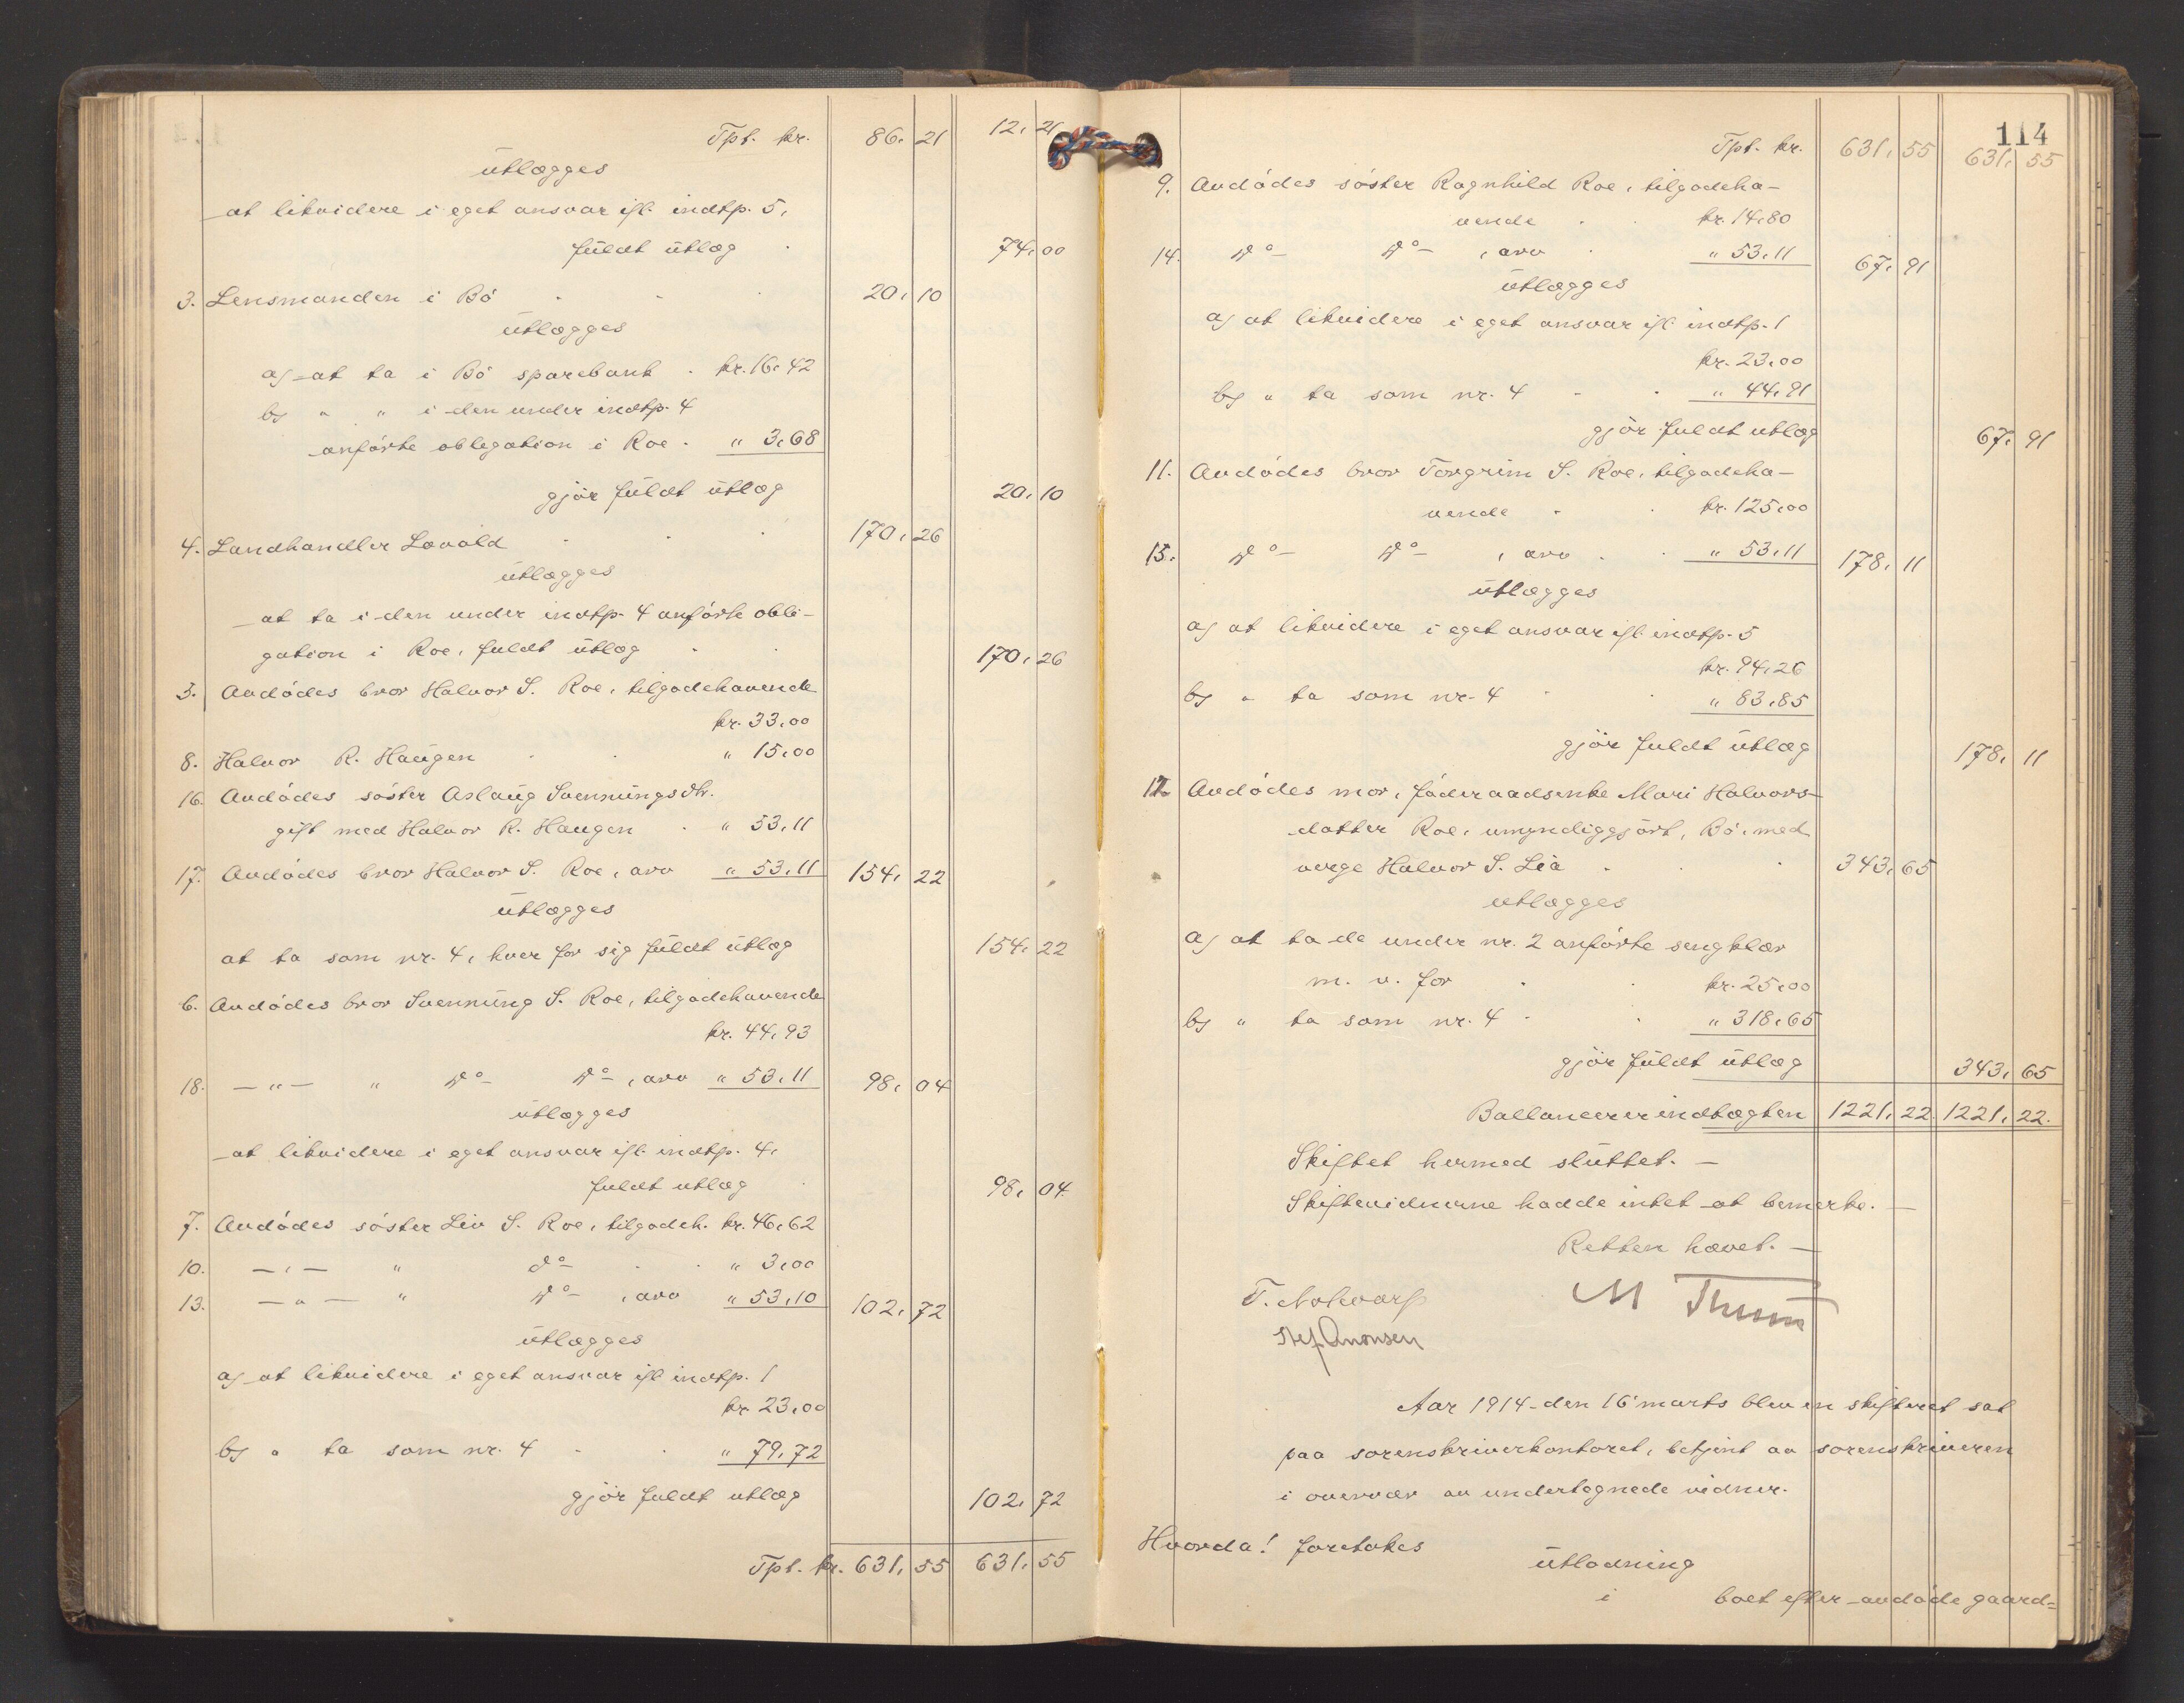 Tpt. kr. 86, 21 12, 21
ütlægges
at likvidere i eget ansvar ifl. indtp. 5,
füldt ütlæg 74,00
3. Lensmanden i Bö 20, 10
ütlægges
a) at ta i Bö sparebank . kr. 16,42
b) " " i den under indtp. 4
anförte obligation i Roe . " 3,68
gjör füldt ütlæg 20, 10
4. Landhandler Løvold 170, 26
ütlægges
at ta i den under indtp. 4 anförte obli-
gation i Roe, fuldt ütlæg 170, 26
3. Avdödes bror Halvor S. Roe, tilgodehavende
kr. 33,00
8. Halvor R. Haugen " 15,00
16. Avdödes söster Aslaug Svennungsdtr.
gift med Halvor R. Haugen . " 53,11
17. Avdödes bror Halvor S. Roe, arv " 53,11 154, 22
ütlægges
at ta som nr. 4, hver for sig füldt ütlæg 154, 22
6. Avdödes bror Svennüng S. Roe, tilgodehavende
kr. 44,93
18. — " — " do do , arv " 53,11 98, 04
ütlægges
at likvidere i eget ansvar ifl. indtp. 4,
fuldt utlæg 98, 04
7. Avdödes söster Liv S. Roe, tilgodeh. kr. 46,62
10. — " — " do . . " 3,00
13. — " — " do , arv " 53,10 102, 72
ütlægges
a) at likvidere i eget ansvar ifl indtp. 1
kr. 23,00
b) " ta som nr. 4 . . " 79,72
gjör fuldt utlæg 102, 72
Tpt. kr. 631, 55 631, 55
114
Tpt. kr. 631, 55 631, 55
9. Avdödes söster Ragnhild Roe, tilgodeha-
vende . . kr. 14,80
14. do do , arv . " 53,11 67, 91
ütlægges
a) at likvidere i eget ansvar ifl. indtp. 1
kr. 23,00
b) " ta som nr. 4 . . " 44,91
gjör fuldt utlæg 67, 91
11. Avdödes bror Torgrim S. Roe, tilgodeha-
vende . . kr. 125,00
15. do do , arv . . " 53,11 178, 11
ütlægges
a) at likvidere i eget ansvar ifl. indtp. 5
kr. 94,26
b) " ta som nr. 4 . . " 83,85
gjör fuldt ütlæg 178, 11
12. Avdödes mor, föderaadsenke Mari Halvors-
datter Roe, umyndiggjört, Bö, med
verge Halvor S. Lia . . . 343, 65
utlægges
a) at ta de under nr. 2 anförte sengklær
m. v. for . . kr. 25,00
b) " ta som nr. 4 . . " 318,65
gjör füldt ütlæg 343, 65
Ballancerer indtægten 1221, 22 1221, 22.
Skiftet hermed slüttet. —
Skiftevidnerne hadde intet at bemerke. —
Retten hævet. —
M
Aar 1914 den 16 marts blev en skifteret sat
paa sorenskriverkontoret, betjent av sorenskriveren
i overvær av undertegnede vidner.
Hvorda! foretokes
ütlodning
i boet efter avdöde gaard=